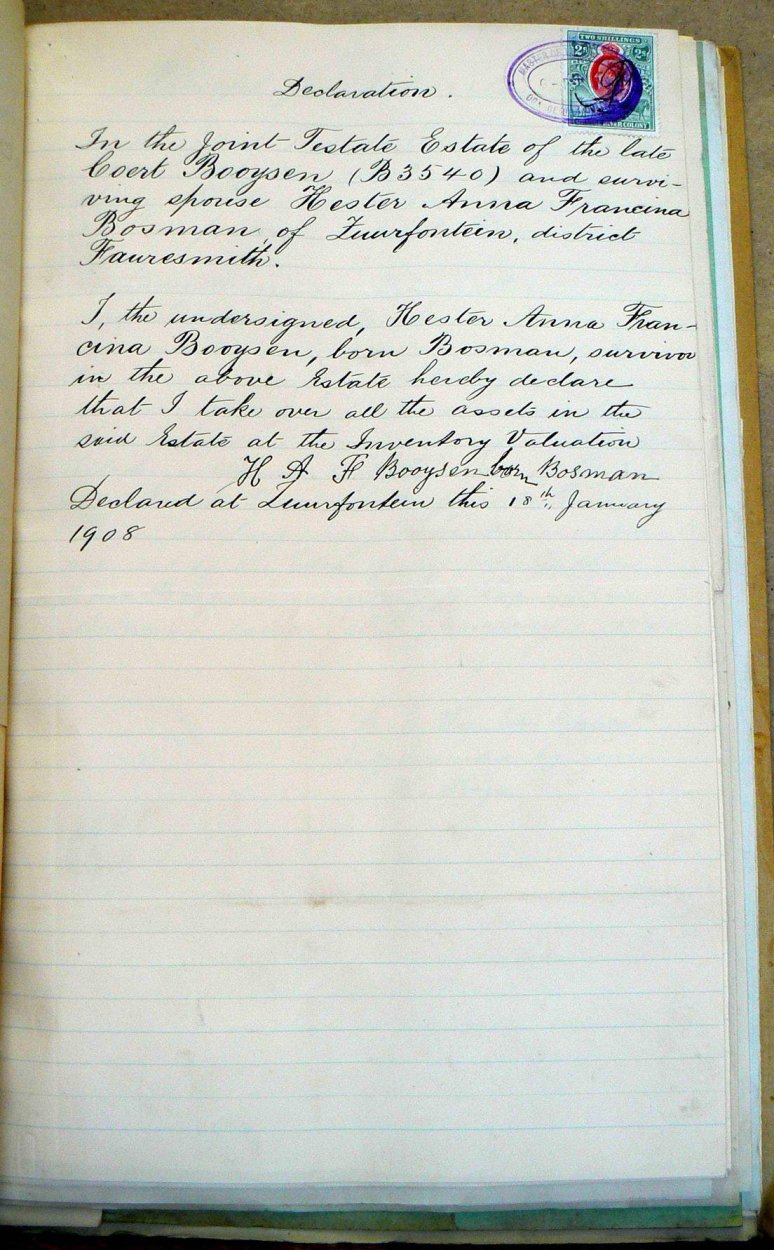 TWO SHILLINGS
2s 2s
Declaration.
In the Joint Testate Estate of the late
Coert Booysen (B3540) and survi-
ving spouse Hester Anna Francina
Bosman, of Zuurfontein, district
Fauresmith.
I, the undersigned, Hester Anna Fran-
cina Booysen, born Bosman, survivor
in the above Estate hereby declare
that I take over all the assets in the
said Estate at the Inventory Valuation
H A F Booysen born Bosman
Declared at Zuurfontein this 18th January
1908